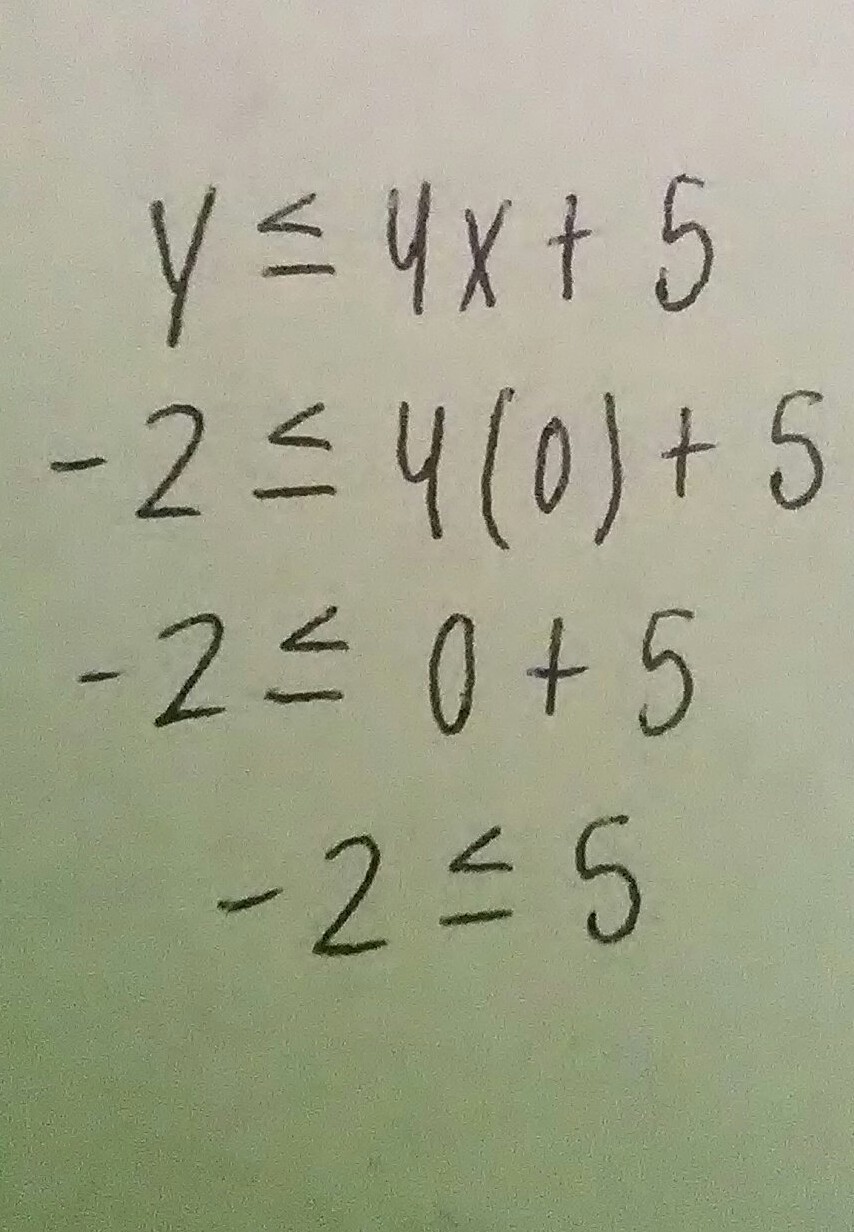 y ≤ 4x + 5
-2 ≤ 4(0) + 5
-2 ≤ 0 + 5
-2 ≤ 5